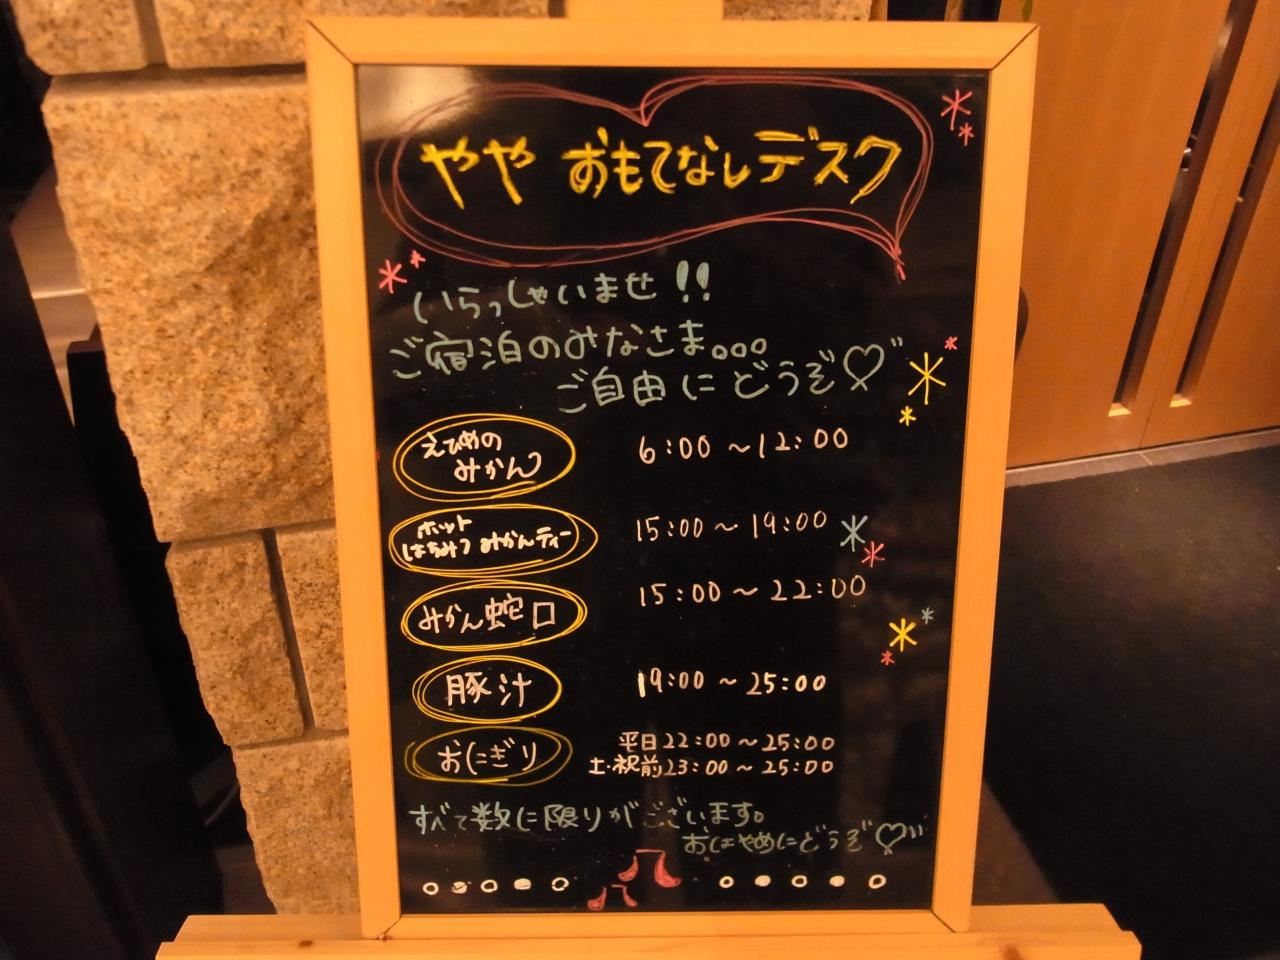 やや おもてなしデスク
いらっしゃいませ!!
ご宿泊のみなさま。。。
ご自由にどうぞ♡"
えひめの
みかん
6:00 ~12:00
ホット
はちみつ みかんティー
15:00 ~ 19:00
みかん蛇口
15:00 ~ 22:00
豚汁
19:00 ~ 25:00
おにぎり
平日22:00~25:00
土・祝前23:00~25:00
すべて数に限りがございます。
おはやめにどうぞ♡"